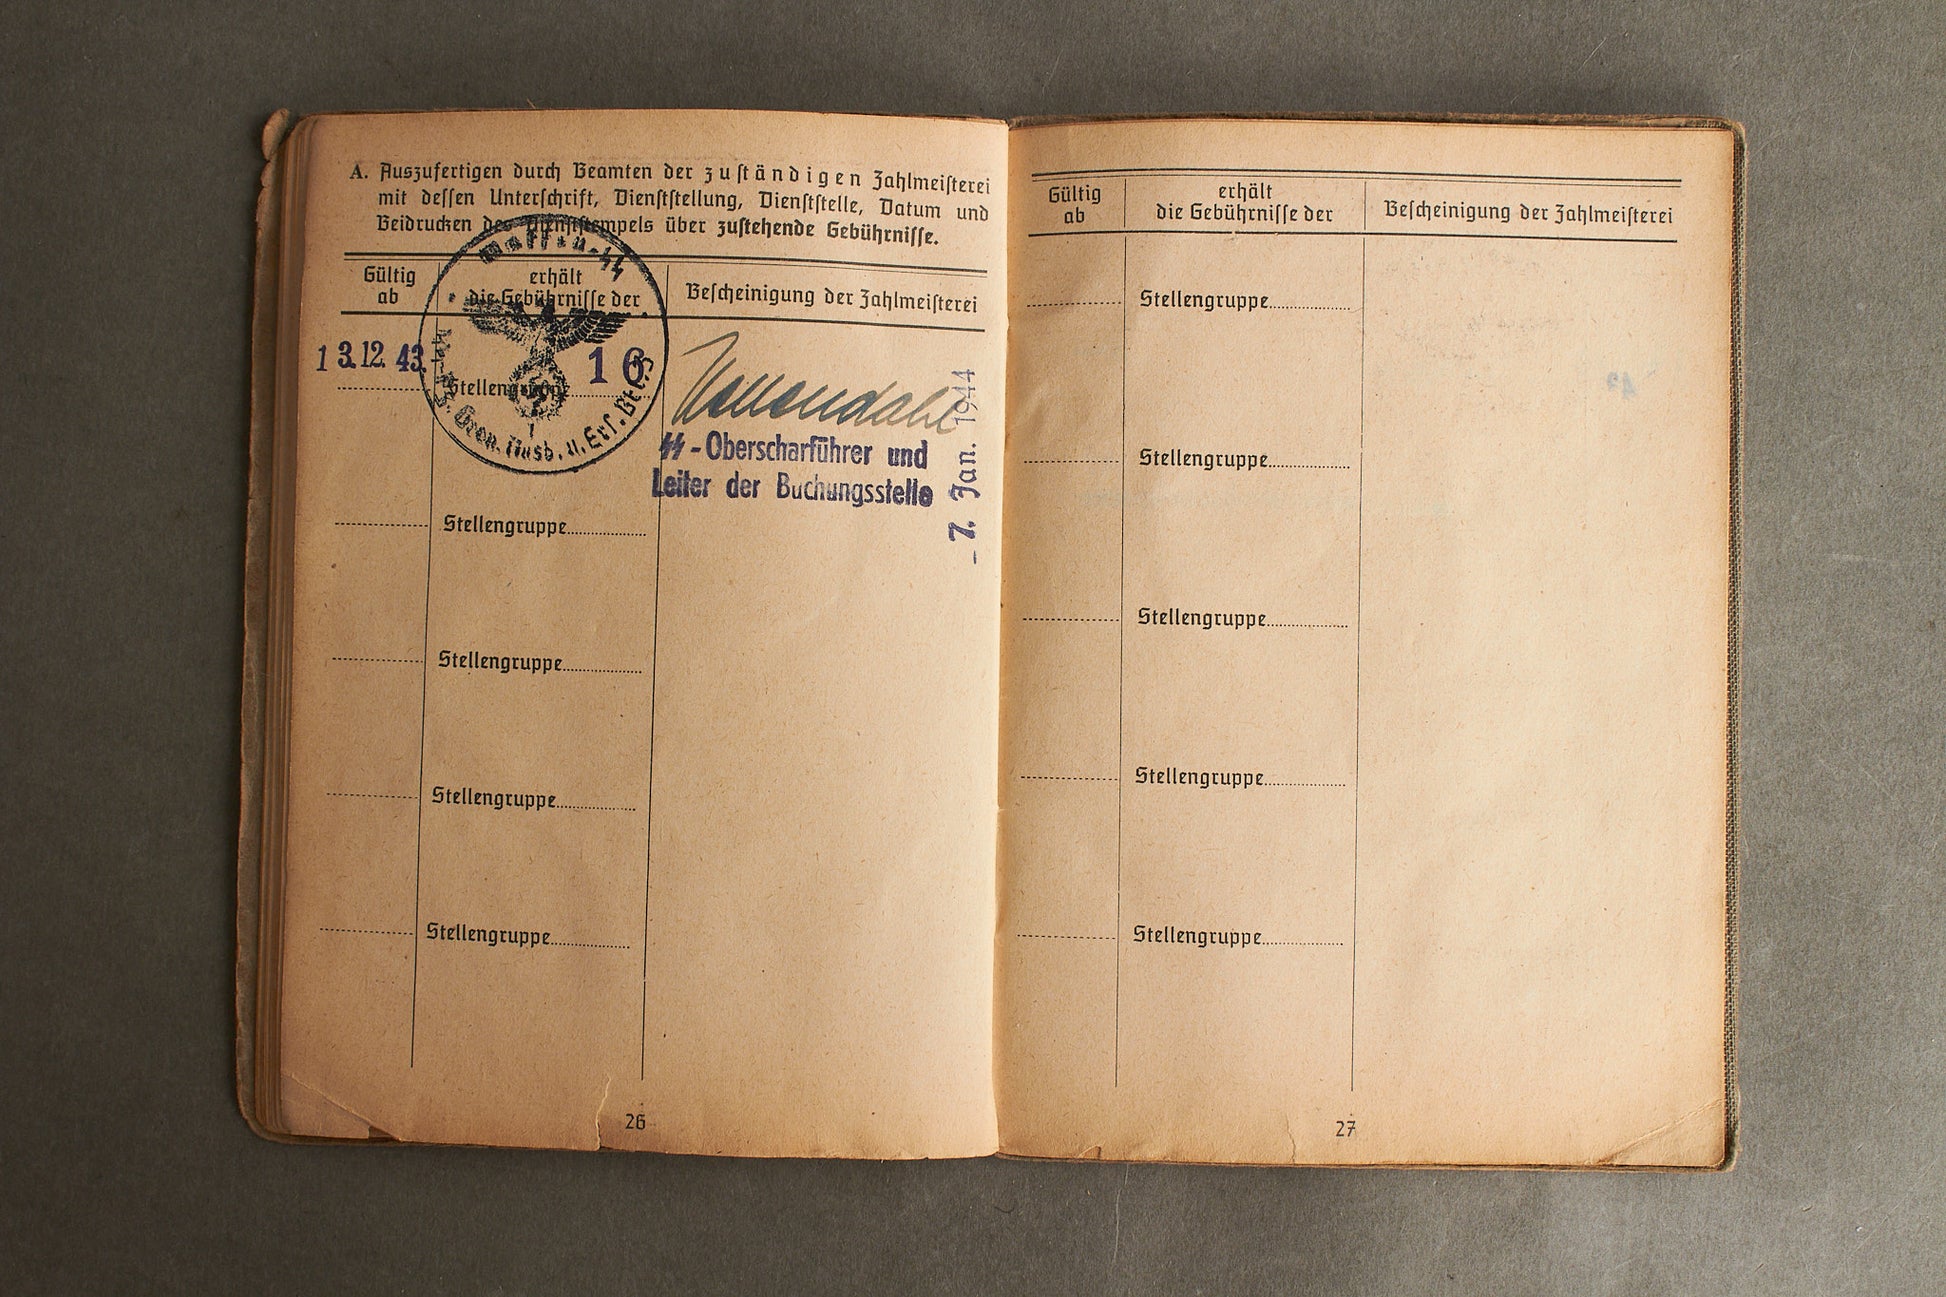 A. Auszufertigen durch Beamten der zuständigen Zahlmeisterei
mit dessen Unterschrift, Dienststellung, Dienststelle, Datum und
Beidrucken des Dienststempels über zustehende Gebührnisse.
Gültig
ab
erhält
die Gebührnisse der
Bescheinigung der Zahlmeisterei
Waffen-SS
Gren. Ausb. u. Ers. Btl.
13.12.43
Stellengruppe
16
SS-Oberscharführer und
Leiter der Buchungsstelle
-7. Jan. 1944
Stellengruppe
Stellengruppe
Stellengruppe
Stellengruppe
26
Gültig
ab
erhält
die Gebührnisse der
Bescheinigung der Zahlmeisterei
Stellengruppe
Stellengruppe
Stellengruppe
Stellengruppe
Stellengruppe
27